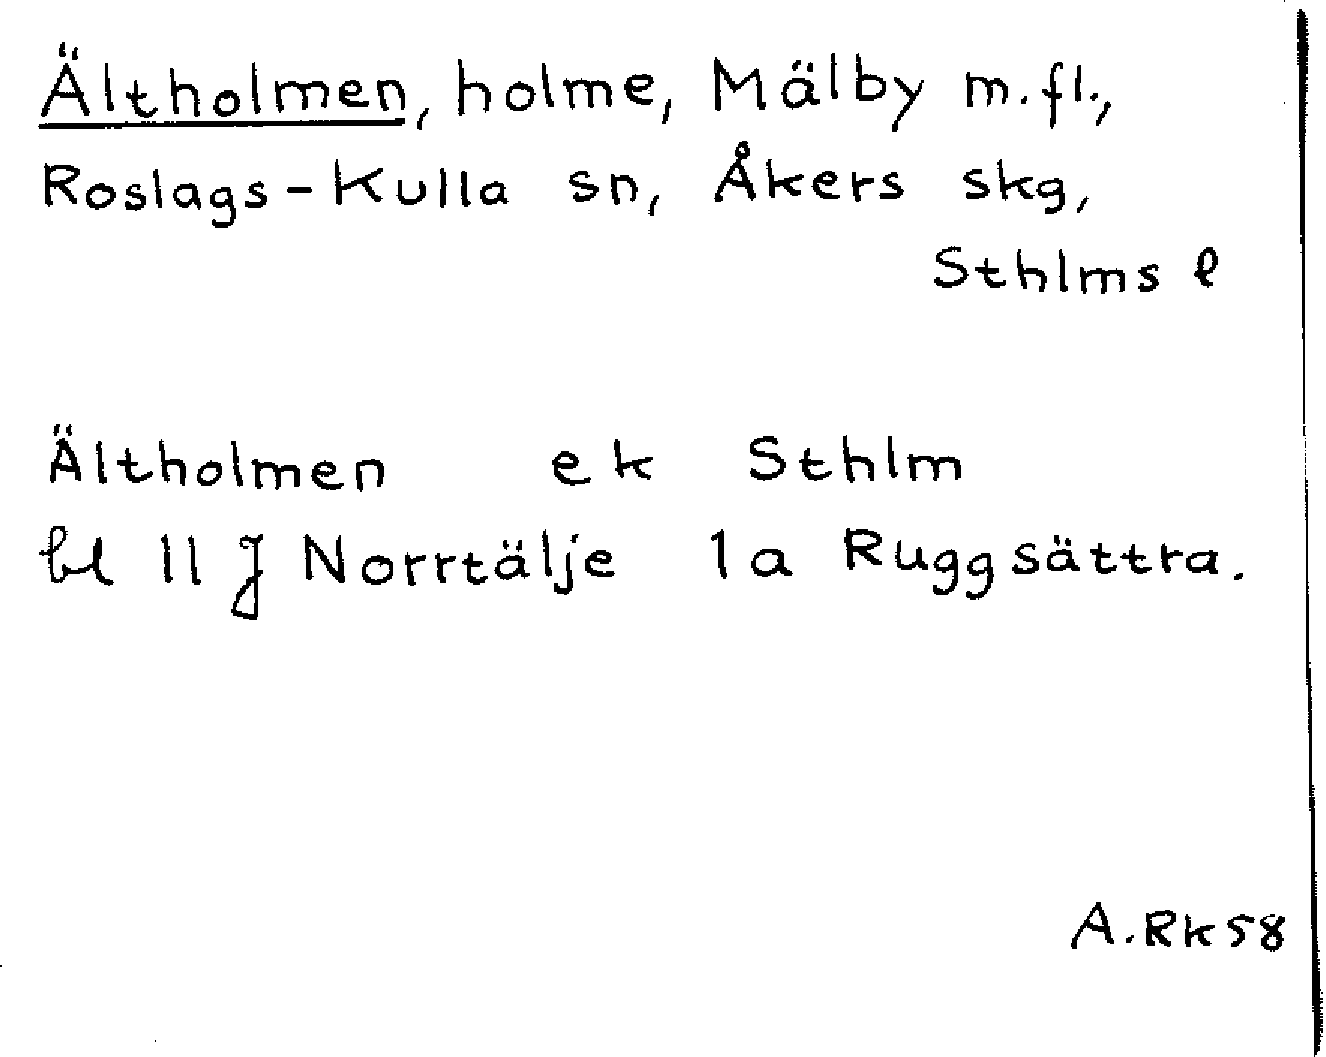 Ältholmen, holme, Mälby m.fl.,
Roslags-Kulla sn, Åkers skg,
Sthlms l
Ältholmen ek Sthlm
bl 11 J Norrtälje 1a Ruggsättra.
A.Rk58